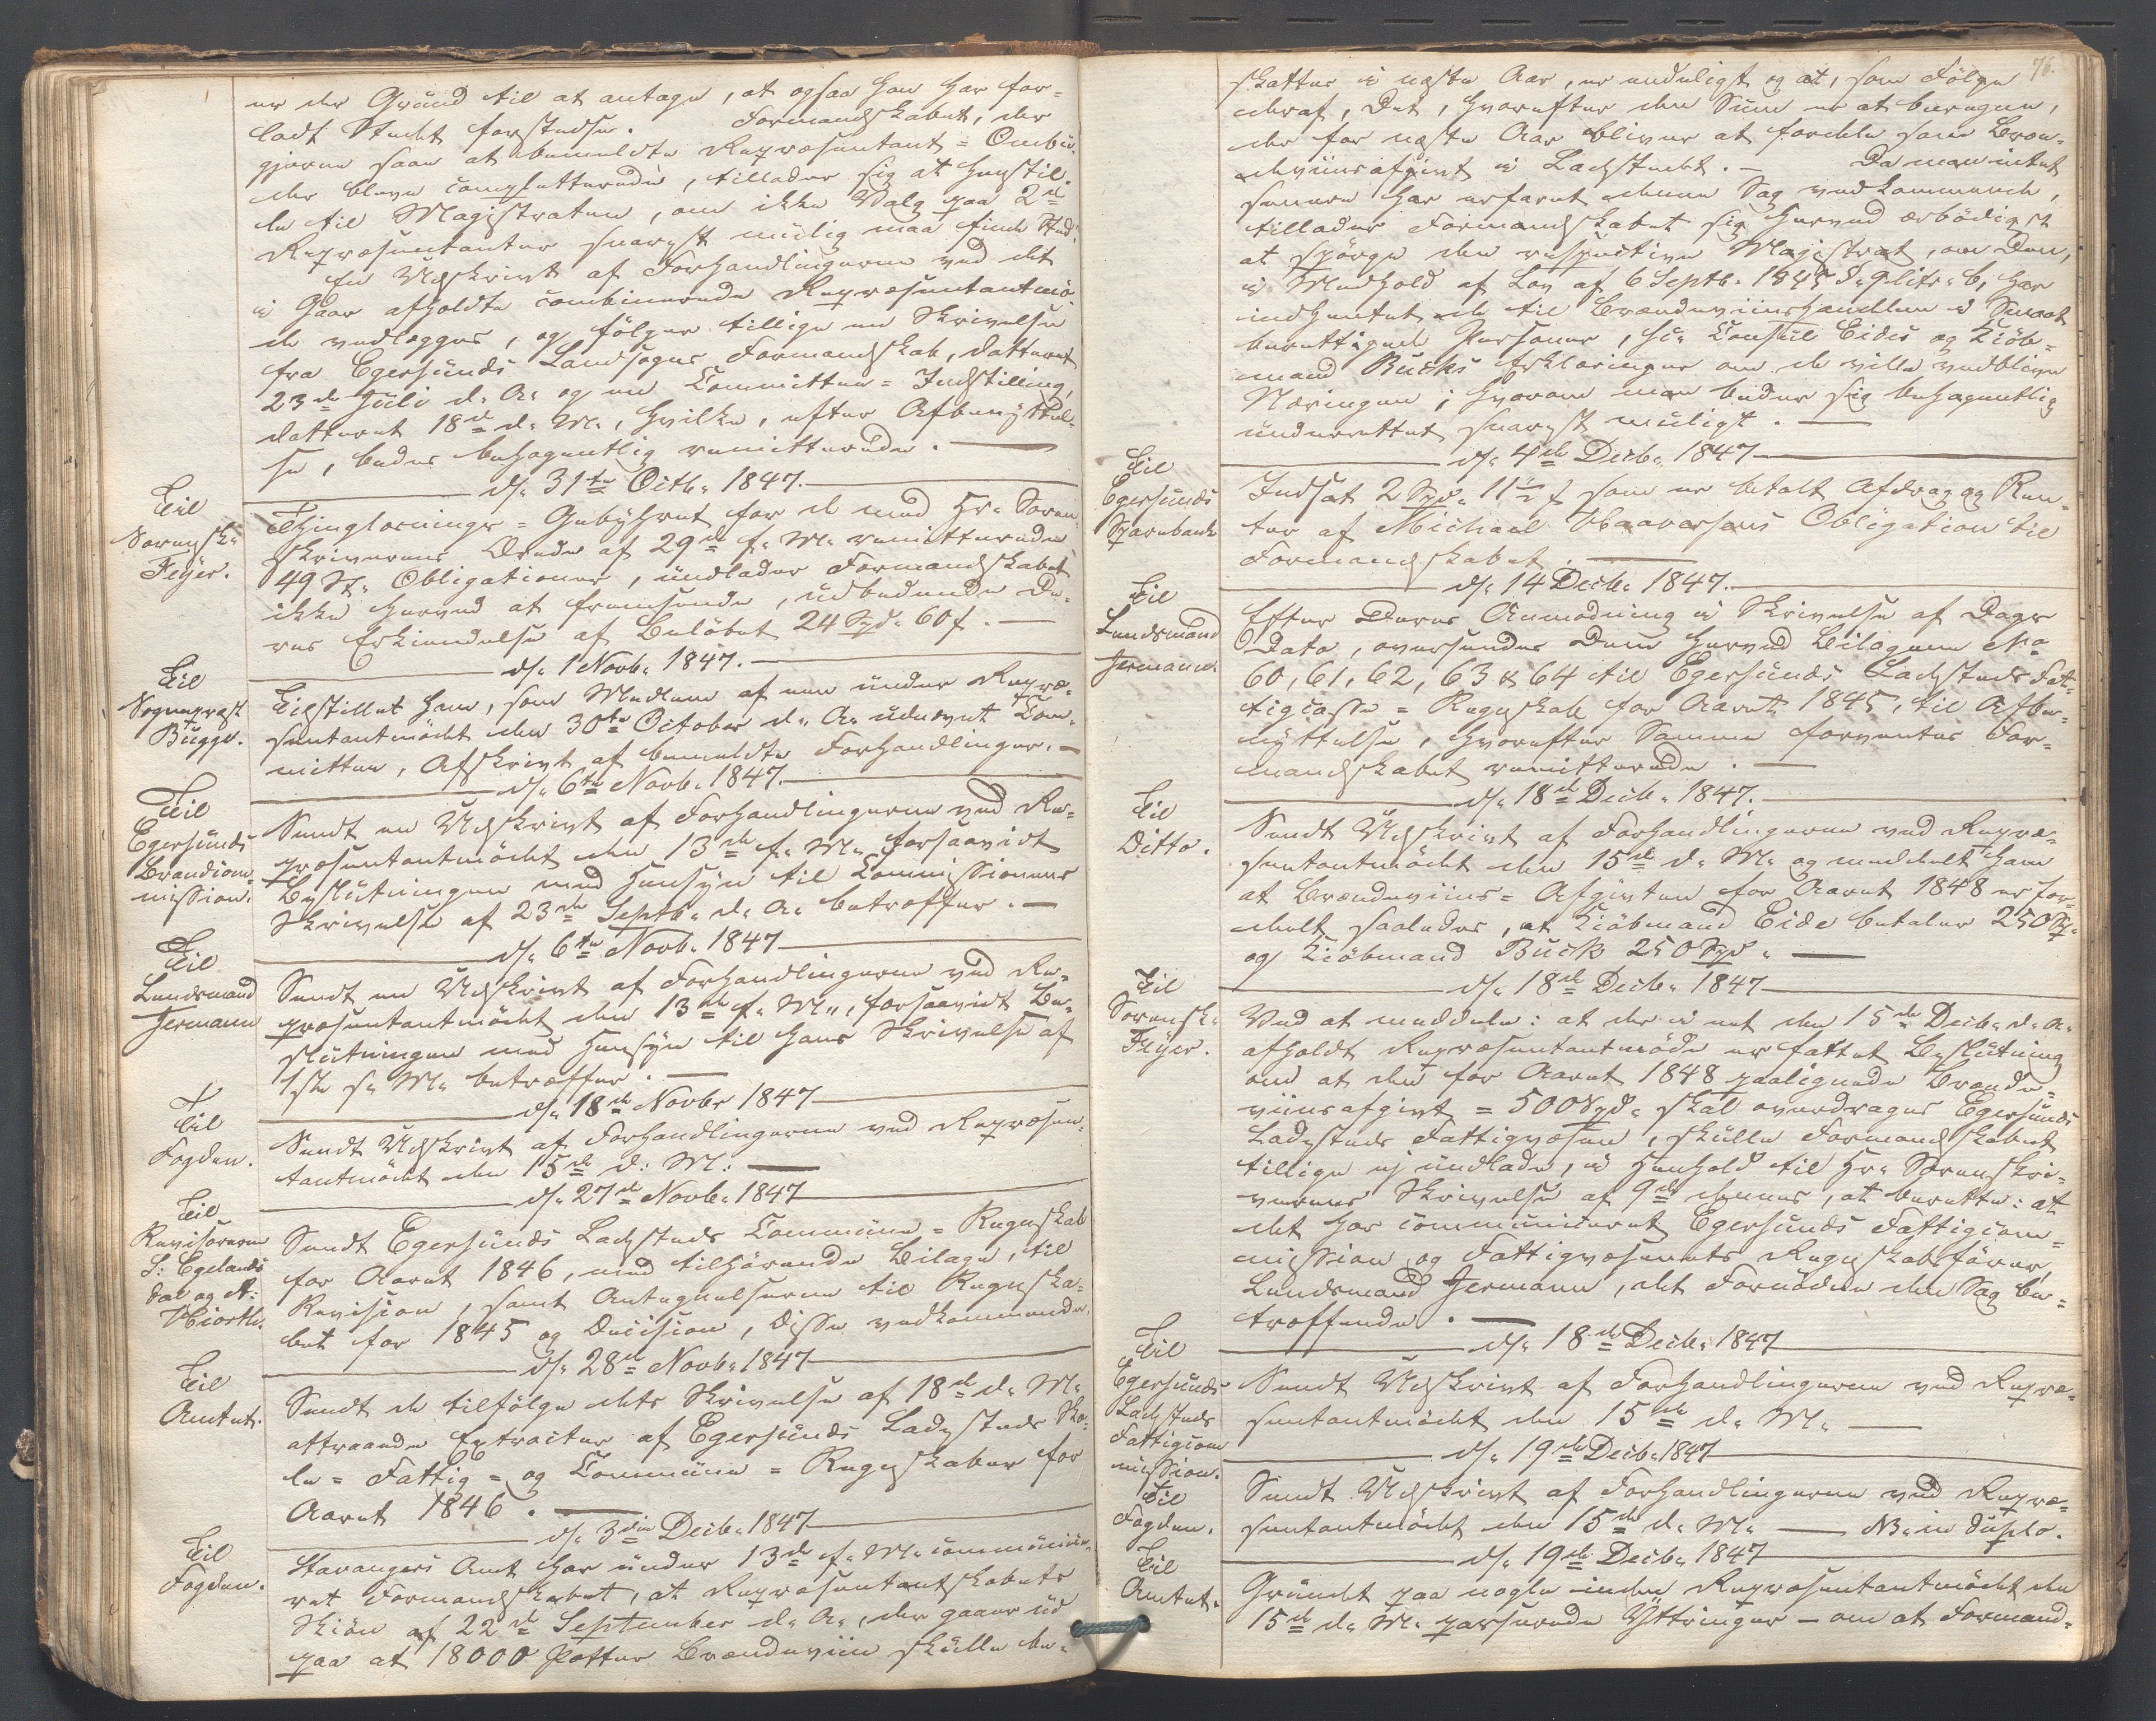 er der Grund til at antage, at ogsaa han har for-
ladt Stedet forstedse. Formandskabet, der
gjerne saae at bemeldte Repræsentant = Ombu-
der bleve completterede, tillader sig at henstil-
le til Magistraten, om ikke Valg paa 2de
Repræsentanter snarest mulig maa finde Sted.
En Udskrivt af Forhandlingerne ved det
i Gaar afholdte combinerede Repræsentantmö-
de vedlægges, og fölger tillige en Skrivelse
fra Egersunds Landsogns Formandskab, datteret
23de Juli d. A. og en Committee = Indstilling,
datteret 18de d. M., hvilke, efter Afbenyttel-
se, bedes behagentlig remitterede. —
d. 31te Octb. 1847.
Til
Sorensk.
Feyer.
Thinglæsnings = Gebyhret for de med Hr. Soren-
skriverens Ærede af 29de f. M. remitterede
49 St. Obligationer, undlader Formandskabet
ikke herved at fremsende, udbedende De-
res Erkiendelse af Belöbet 24 Spd. 60 s. —
d. 1 Novb. 1847.
Til
Sognepræst
Bugge.
Tilstillet ham, som Medlem af een under Repræ-
sentantmödet den 30te October d. A. udnevnt Com-
mittee, Afskrivt af bemeldte Forhandlinger. —
d. 6te Novb. 1847.
Til
Egersunds
Brandcom-
mission.
Sendt en Udskrivt af Forhandlingerne ved Re-
præsentantmödet den 13de f. M. forsaavidt
Beslutningen med Hensyn til Commissionens
Skrivelse af 23de Septb. d. A. betræffer. —
d. 6te Novb. 1847
Til
Lendsmand
Jermann
Sendt en Udskrivt af Forhandlingerne ved Re-
præsentantmödet den 13de f. M., forsaavidt Be-
slutningen med Hensyn til hans Skrivelse af
1ste f. M. betræffer. —
d. 18de Novbr 1847
Til
Fogden.
Sendt Udskrivt af Forhandlingerne ved Repræsen-
tantmödet den 15de d. M. —
d. 27de Novb. 1847
Til
Revisorerne
S. Egelands-
dal og A.
Hiorth.
Sendt Egersunds Ladesteds Commune = Regnskab
for Aaret 1846, med tilhörende Bilage, til
Revision, samt Antegnelserne til Regnska-
bet for 1845 og Decision, disse vedkommende.
d. 28de Novb. 1847
Til
Amtet.
Sendt de tilfölge dets Skrivelse af 18de d. M.
attraaede Extracter af Egersunds Ladesteds Sko-
le = Fattig = og Commune = Regnskaber for
Aaret 1846. —
d. 3die Decb. 1847
Til
Fogden.
Stavangers Amt har under 13de f. M. communice-
ret Formandskabet, at Repræsentantskabets
Skiön af 22de September d. A., der gaaer ud
paa at 18000 Potter Brændeviin skulle be-
76.
skattes i næste Aar, er endeligt og at, som Fölge
deraf, Det, hvorefter den Sum er at beregne,
der for næste Aar bliver at fordele som Bræn-
deviinsafgivt i Ladestedet. — Da man intet
senere har erfaret denne Sag vedkommende,
tillader Formandskabet sig herved ærbödigst
at spörge den respective Magistrat, om Den,
i Medhold af Lov af 6 Septb. 1845 § 9 litr. b, har
indhentet de til Brændeviinshandlen i Smaat
berettigede Personer, Hr. Consul Eides og Kiöb-
mand Bucks Erklæringer om de ville vedblive
Næringen; hvorom man beder sig behagentlig
underrettet snarest muligt. —
d. 4de Decb. 1847
Til
Egersunds
Sparebank
Indsat 2 Spd. 11 1/2 s som er betalt Afdrag og Ren-
ter af Michael Haaversens Obligation til
Formandskabet. —
d. 14 Decb. 1847.
Til
Lendsmand
Jermann.
Efter Deres Anmodning i Skrivelse af Dags
Dato, oversendes Dem herved Bilagene No
60, 61, 62, 63 & 64 til Egersunds Ladesteds Fat-
tigcasse = Regnskab for Aaret 1845, til Afbe-
nyttelse, hvorefter Samme forventes For-
mandskabet remitterede. —
d. 18de Decb. 1847.
Til
Ditto.
Sendt Udskrivt af Forhandlingerne ved Repræ-
sentantmödet den 15de d. M. og meddeelt ham
at Brændeviins = Afgivten for Aaret 1848 er for-
deelt saaledes, at Kiöbmand Eide betaler 250 Sp.
og Kiöbmand Buck 250 Spd. —
d. 18de Decb. 1847
Til
Sorensk.
Feyer.
Ved at meddele: at der i et den 15de Decb. d. A.
afholdt Repræsentantmöde er fattet Beslutning
om at den for Aaret 1848 paalignede Brænde-
viinsafgivt = 500 Spd. skal overdrages Egersunds
Ladesteds Fattigvæsen, skulle Formandskabet
tillige ej undlade, i Henhold til Hr. Sorenskri-
verens Skrivelse af 9de dennes, at berette: at
det har communiceret Egersunds Fattigcom-
mission og Fattigvæsenets Regnskabsförer,
Lendsmand Jermann, det Fornödne den Sag be-
træffende. —
d. 18de Decb. 1847
Til
Egersunds
Ladesteds
Fattigcom-
mission.
Sendt Udskrivt af Forhandlingerne ved Repræ-
sentantmödet den 15de d. M. —
d. 19de Decb. 1847
Til
Fogden.
Sendt Udskrivt af Forhandlingerne ved Repræ-
sentantmödet den 15de d. M. — NB. in duplo.
d. 19de Decb. 1847
Til
Amtet.
Grundet paa nogle inden Repræsentantmödet den
15de d. M. passerede Yttringer — om at Formand-